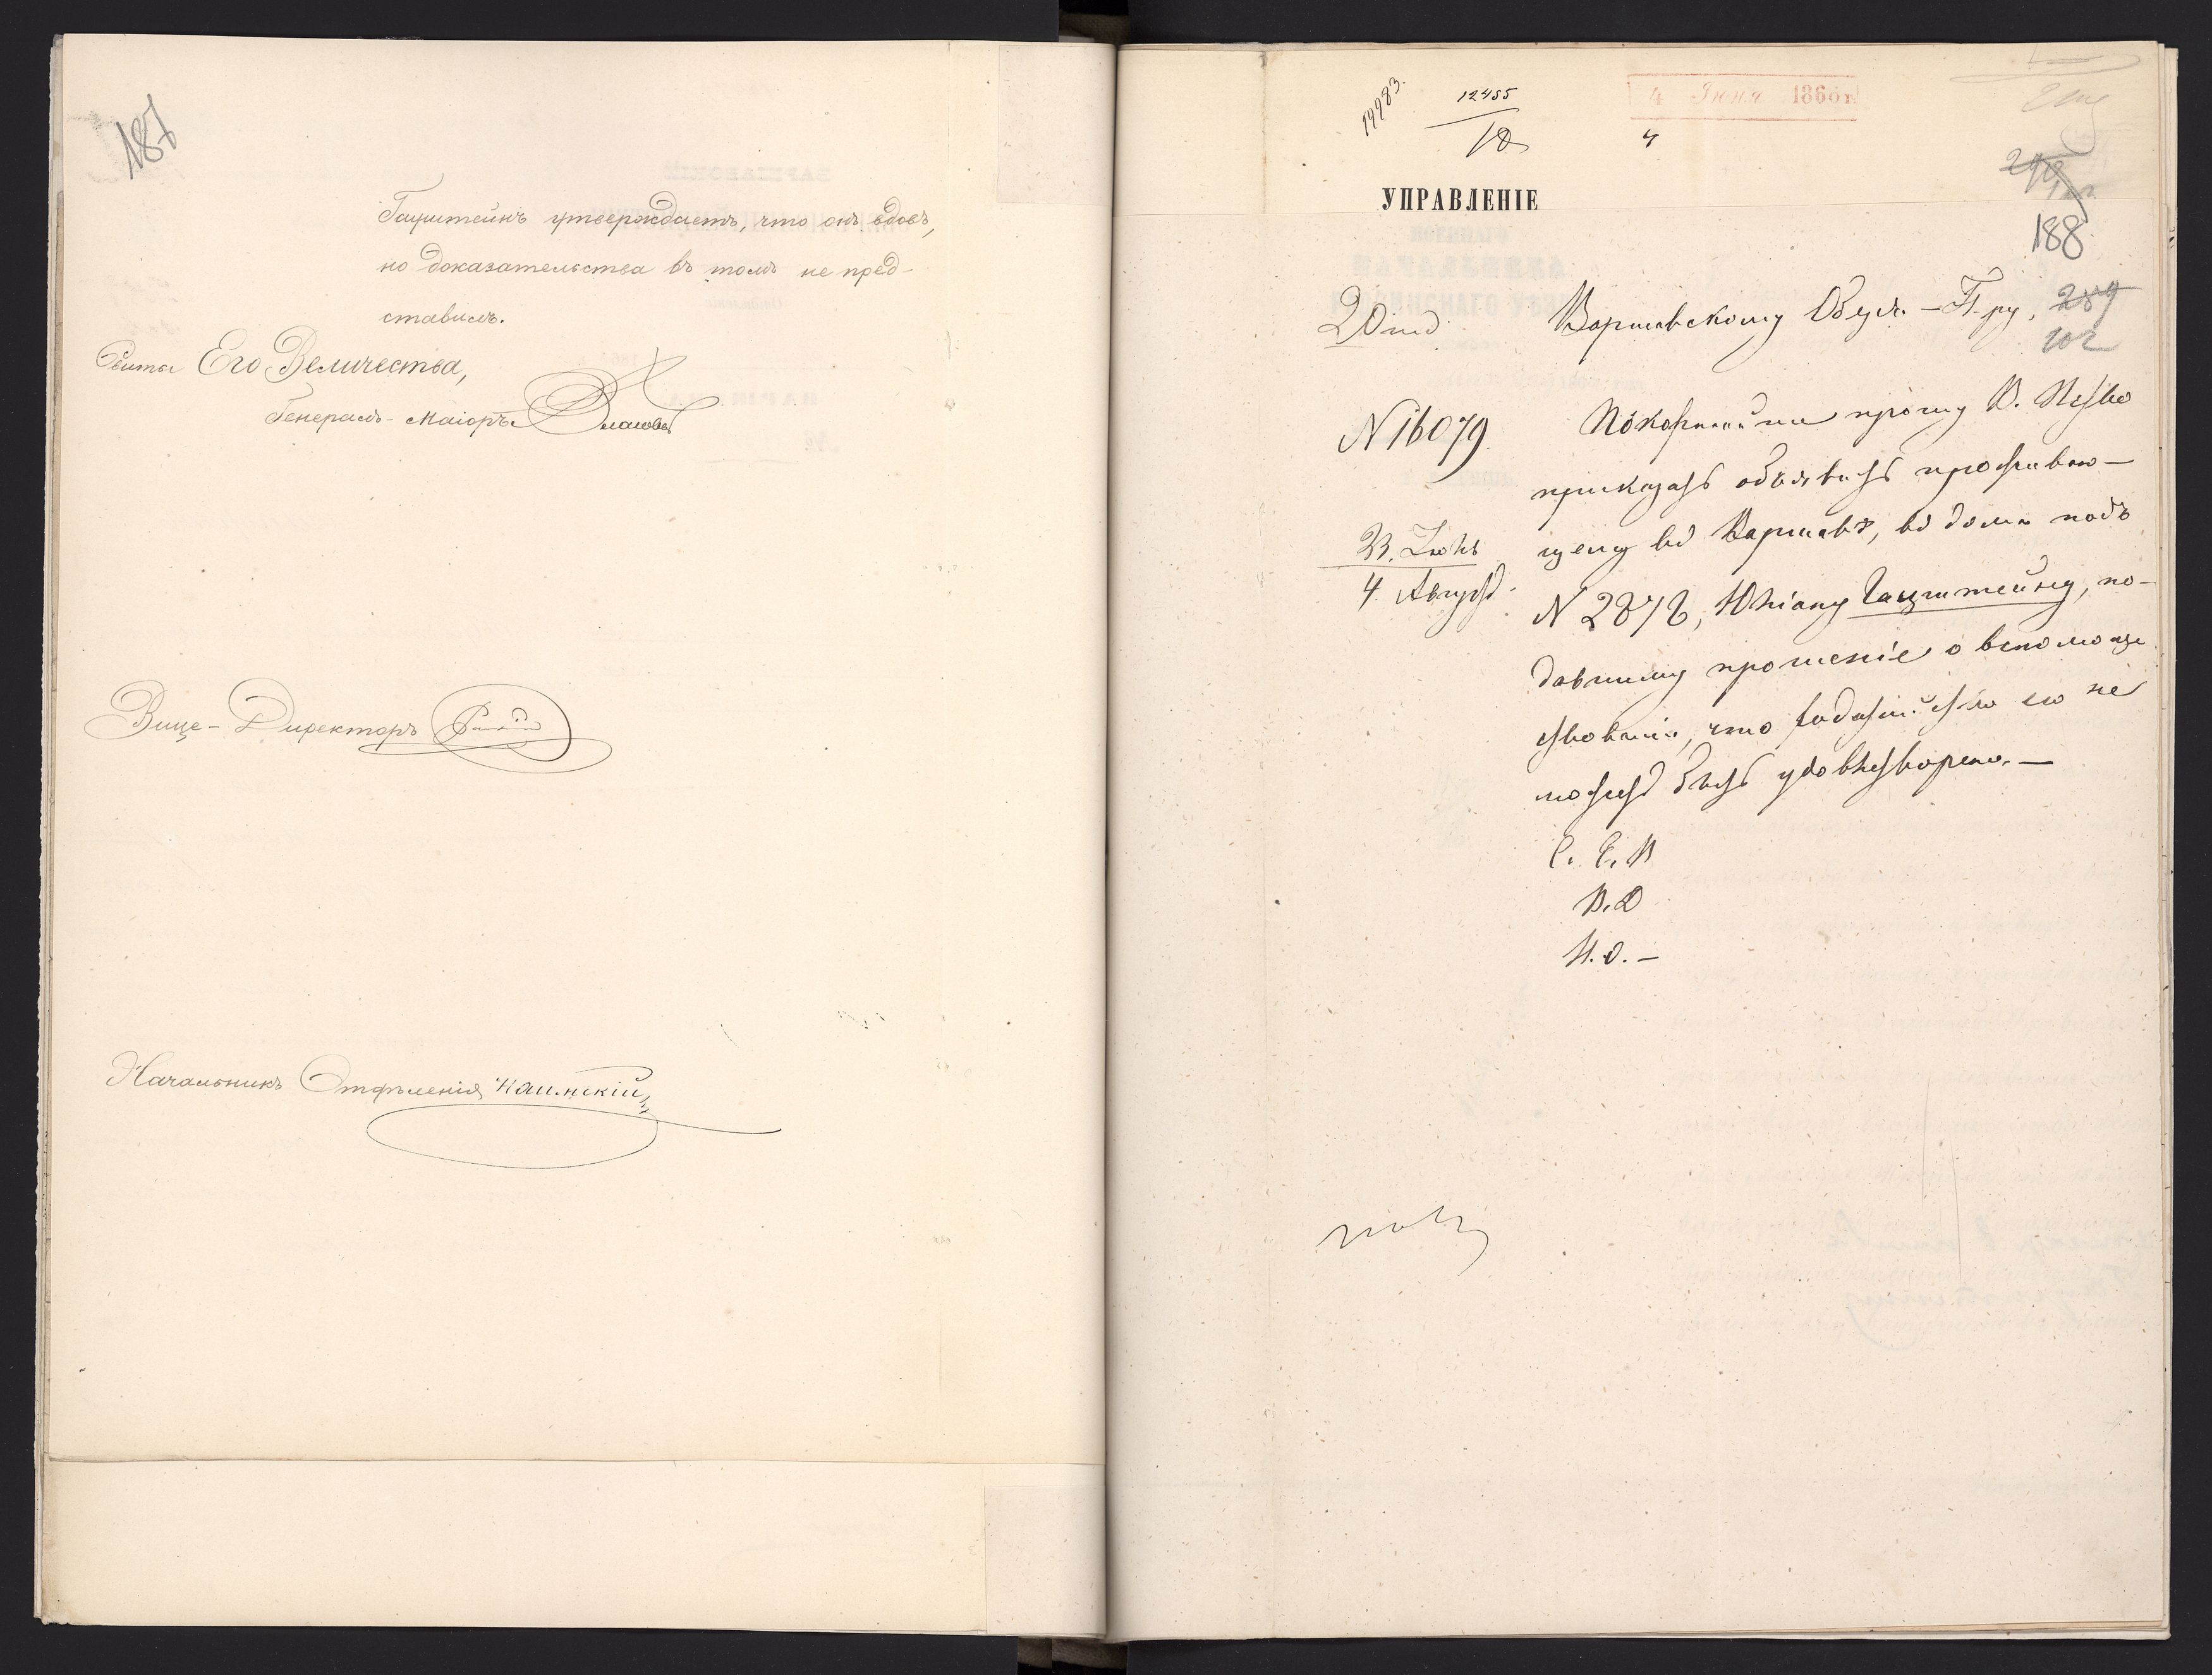 187
Гацштейнъ утверждаетъ, что онъ вдовъ,
но доказательства въ томъ не пред-
ставилъ.
Свиты Его Величества,
Генералъ-Маіоръ
Вице-Директоръ
Начальникъ Отдѣленія
12455
18
4 Іюня 1866 г.
4
УПРАВЛЕНІЕ
188
289
102
2 Отд
Варшавскому Оберъ-П-ру,
N 16079
Покорнѣйше прошу В. П-ство
приказать объявить проживаю-
23. Іюль
4. Августъ
щему въ Варшавѣ, въ домѣ подъ
N 2878, Юліану Гацштейну, по-
давшему прошеніе о вспомоще
ствованіи, что ходатайство его не
можетъ быть удовлетворено. —
С. Е. В
В. Д
Н. О. —